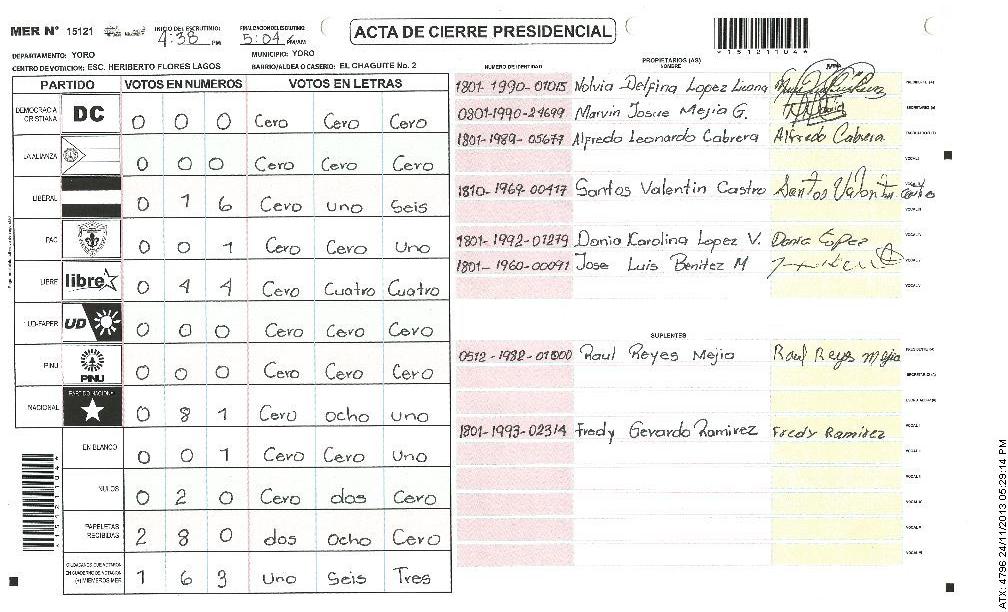 MER N° 15121 INICIO DEL ESCRUTINIO: 4:38 PM FINALIZACION ESCRUTINIO: 5:04 PM/AM
ACTA DE CIERRE PRESIDENCIAL
*151211044*
DEPARTAMENTO: YORO MUNICIPIO: YORO
CENTRO DE VOTACION: ESC. HERIBERTO FLORES LAGOS BARRIO/ALDEA O CASERIO: EL CHAGUITE No. 2
PARTIDO VOTOS EN NUMEROS VOTOS EN LETRAS
DEMOCRACIA CRISTIANA DC 0 0 0 Cero Cero Cero
LA ALIANZA 0 0 0 Cero Cero Cero
LIBERAL 0 1 6 Cero uno Seis
PAC 0 0 1 Cero Cero Uno
LIBRE libre 0 4 4 Cero Cuatro Cuatro
UD-FAPER UD 0 0 0 Cero Cero Cero
PINU PINU 0 0 0 Cero Cero Cero
NACIONAL PARTIDO NACIONAL 0 8 1 Cero ocho uno
EN BLANCO 0 0 1 Cero Cero Uno
NULOS 0 2 0 Cero dos Cero
PAPELETAS RECIBIDAS 2 8 0 dos Ocho Cero
CIUDADANOS QUE VOTARON EN CUADERNO DE VOTACION (+) MIEMBROS MER 1 6 3 uno Seis Tres
NUMERO DE IDENTIDAD PROPIETARIOS (AS) NOMBRE FIRMA
1801-1990-01015 Nolvia Delfina Lopez PRESIDENTE (A)
0801-1990-24699 Marvin Josue Mejia G. SECRETARIO (A)
1801-1989-05677 Alfredo Leonardo Cabrera Alfredo Cabrera ESCRUTADOR (A)
VOCAL I
1810-1969-00417 Santos Valentin Castro Santos Valentin
VOCAL III
1801-1992-01279 Dania Karolina Lopez V. Dania Lopez VOCAL IV
1801-1960-00091 Jose Luis Benitez M VOCAL V
SUPLENTES
0512-1982-01000 Raul Reyes Mejia Raul Reyes Mejia PRESIDENTE (A)
SECRETARIO (A)
ESCRUTADOR (A)
1801-1993-02314 Fredy Gerardo Ramirez Fredy Ramirez VOCAL I
VOCAL II
VOCAL III
VOCAL IV
VOCAL V
VOCAL VI
*151211044*
ATX: 4796 24/11/2013 05:29:14 PM